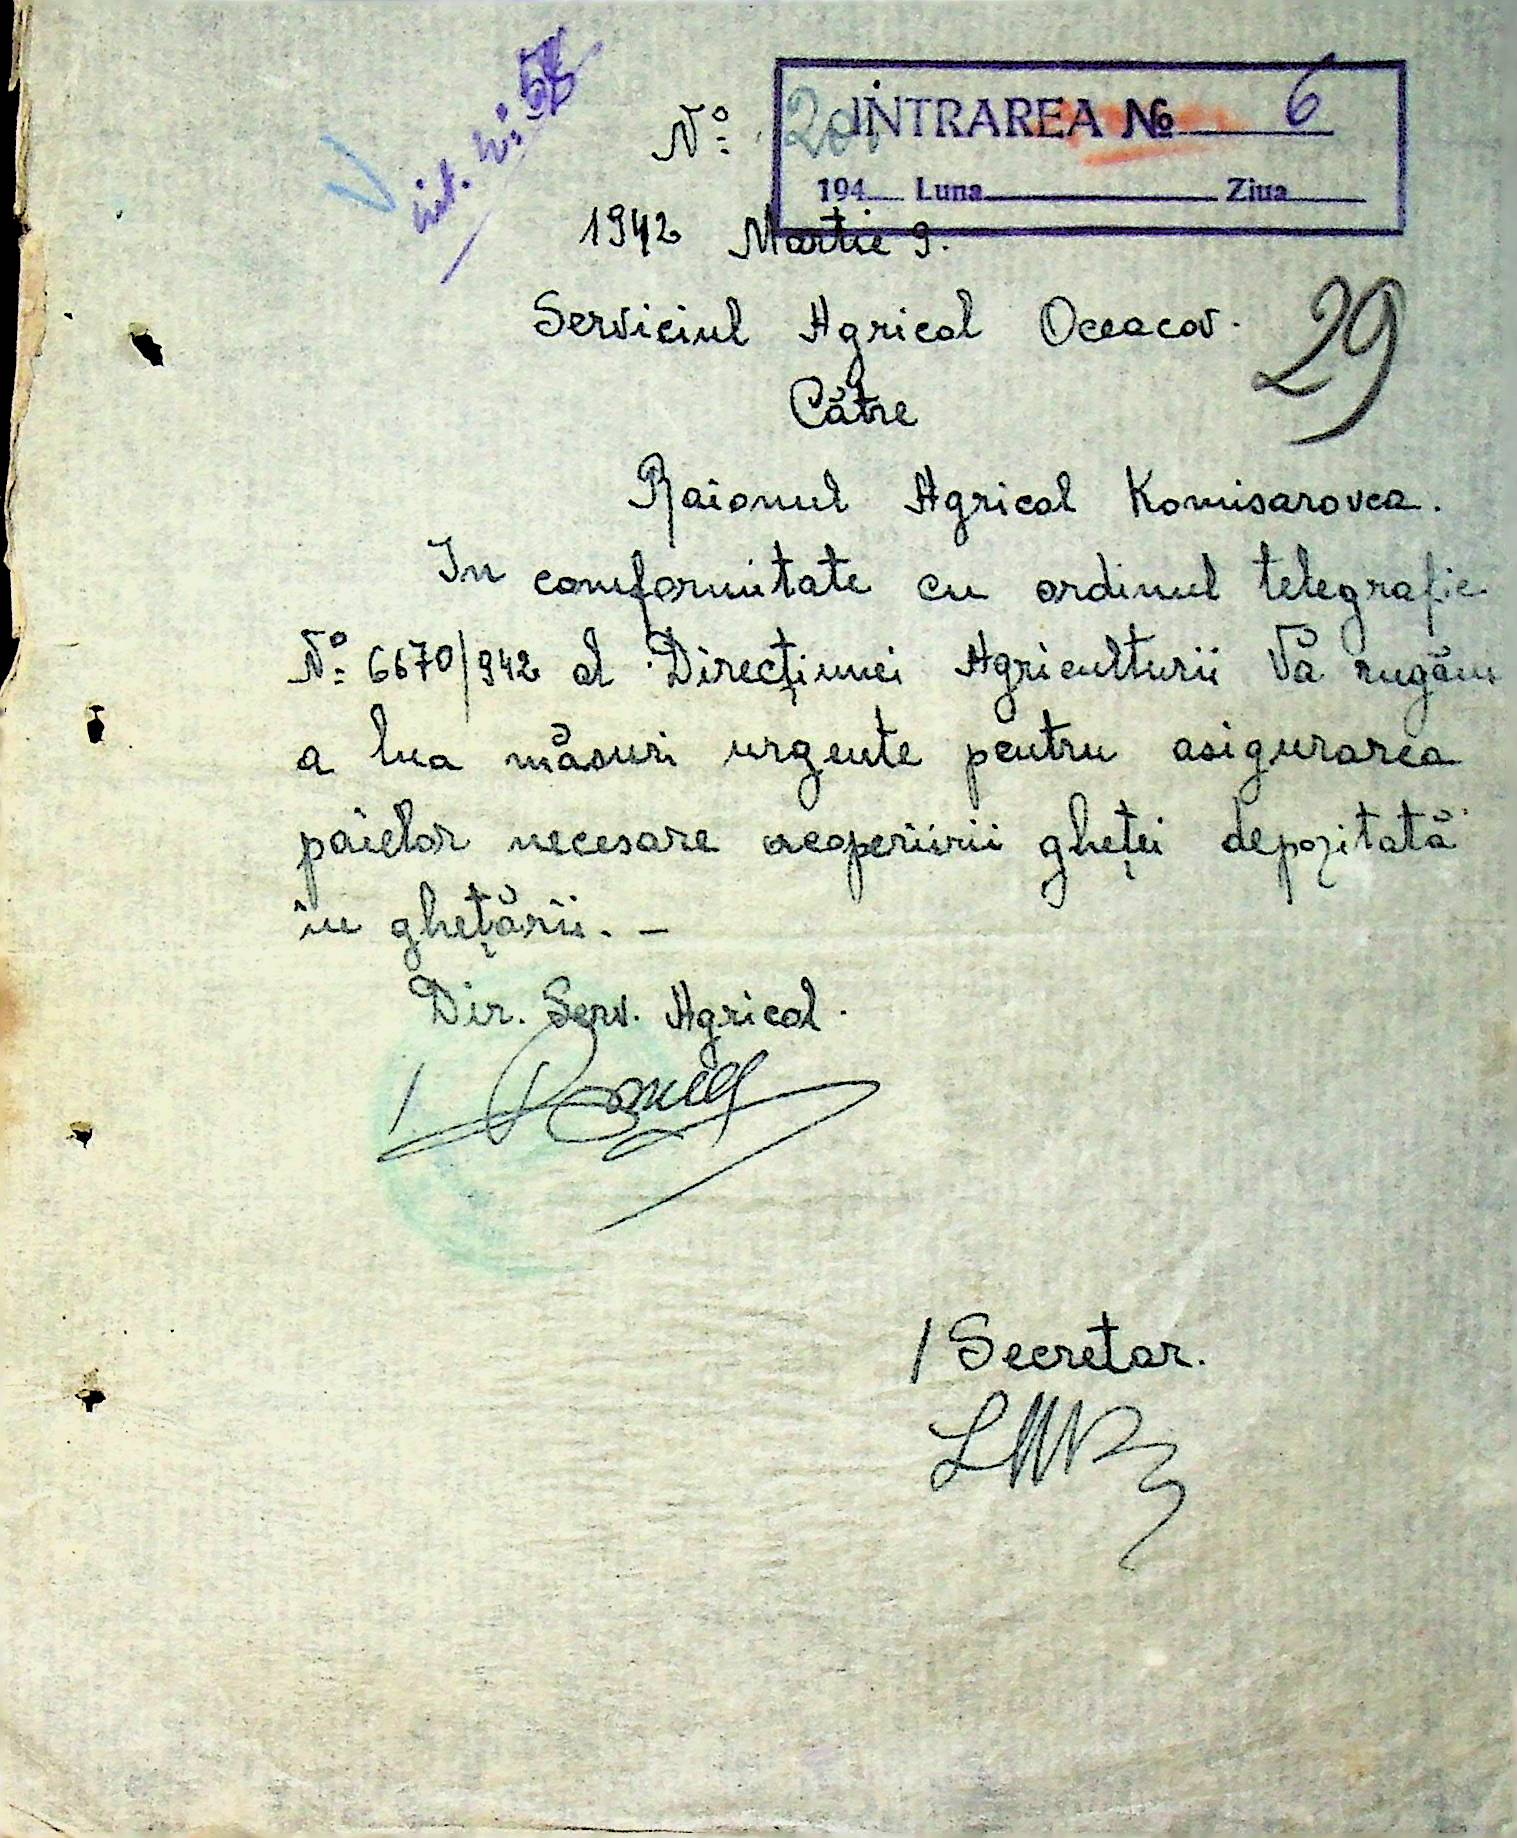 int. No:
No: 201
INTRAREA No 6
194 Luna Ziua
1942 Martie 9.
Serviciul Agricol Oceacov.
29
Către
Raionul Agricol Komisarovca.
In comformitate cu ordinul telegrafic
No: 6670/942 al Direcțiunei Agriculturii Vă rugăm
a lua măsuri urgente pentru asigurarea
paielor necesare acoperiirii gheței depozitată
în ghețării. -
Dir. Serv. Agricol.
/ Secretar.